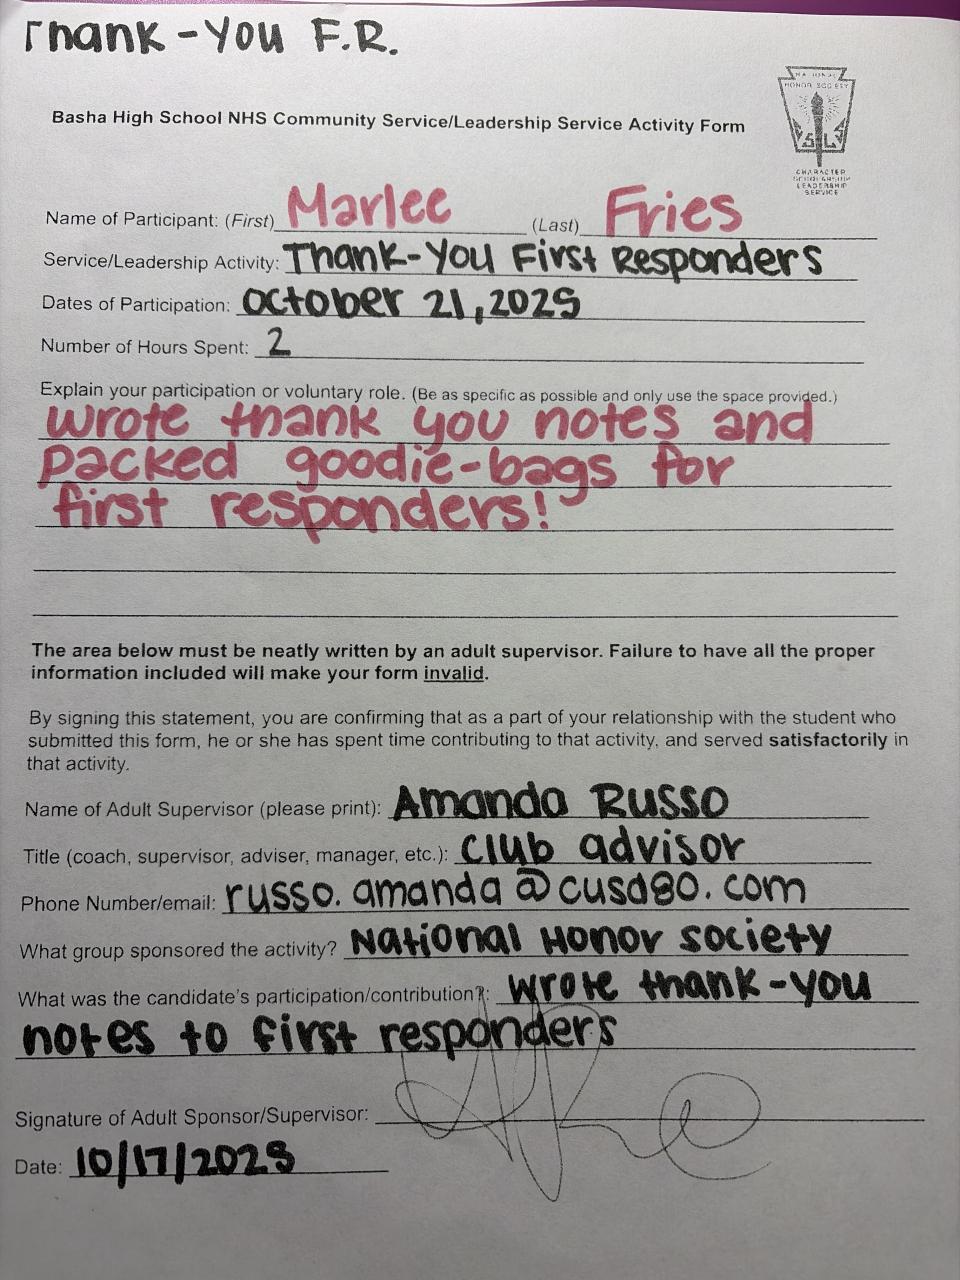 Thank-You F.R.
NATIONAL
HONOR SOCIETY
CHARACTER
SCHOLARSHIP
LEADERSHIP
SERVICE
Basha High School NHS Community Service/Leadership Service Activity Form
Name of Participant: (First) Marlee (Last) Fries
Service/Leadership Activity: Thank-You First Responders
Dates of Participation: October 21, 2025
Number of Hours Spent: 2
Explain your participation or voluntary role. (Be as specific as possible and only use the space provided.)
wrote thank you notes and
packed goodie-bags for
first responders!
The area below must be neatly written by an adult supervisor. Failure to have all the proper
information included will make your form invalid.
By signing this statement, you are confirming that as a part of your relationship with the student who
submitted this form, he or she has spent time contributing to that activity, and served satisfactorily in
that activity.
Name of Adult Supervisor (please print): Amanda Russo
Title (coach, supervisor, adviser, manager, etc.): club advisor
Phone Number/email: russo.amanda@cusd80.com
What group sponsored the activity? National Honor Society
What was the candidate's participation/contribution?: wrote thank-you
notes to first responders
Signature of Adult Sponsor/Supervisor:
Date: 10/17/2025